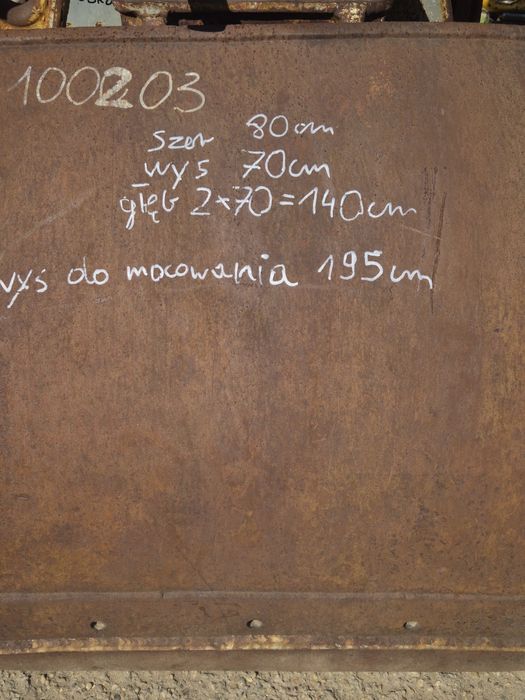 100203
szer 80cm
wys 70cm
głęb 2×70=140cm
wyś do mocowania 195cm